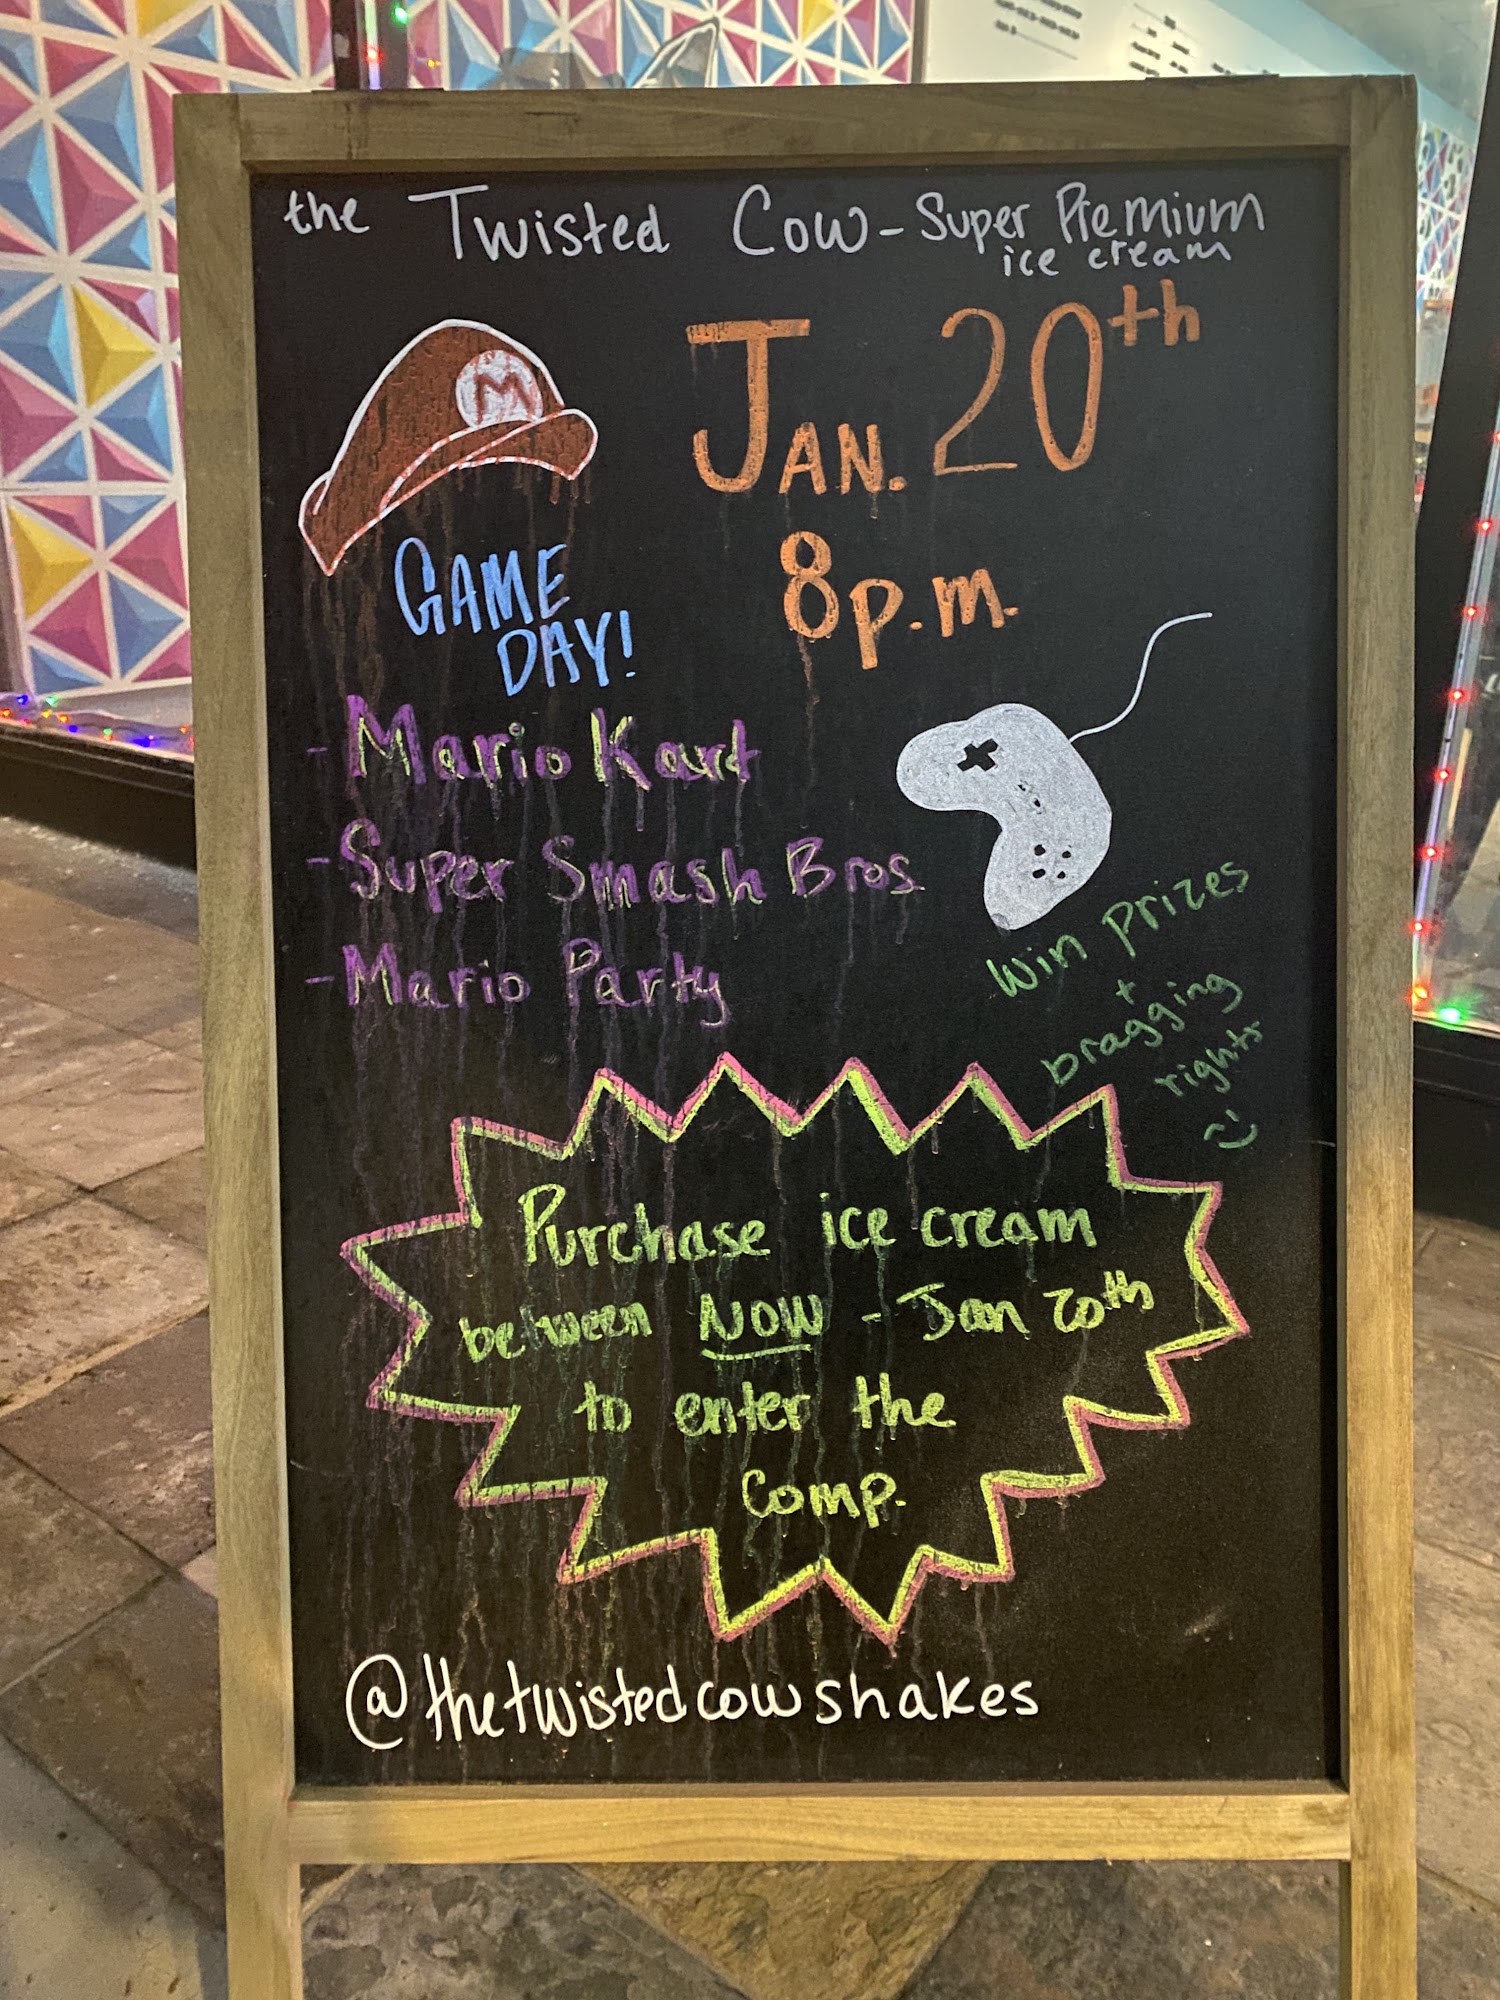 the Twisted Cow - Super Premium
ice cream
Jan. 20th
8 p.m.
M
GAME
DAY!
- Mario Kart
- Super Smash Bros.
- Mario Party
Win Prizes
+
bragging
rights
Purchase ice cream
between NOW - Jan 20th
to enter the
Comp.
@thetwistedcowshakes